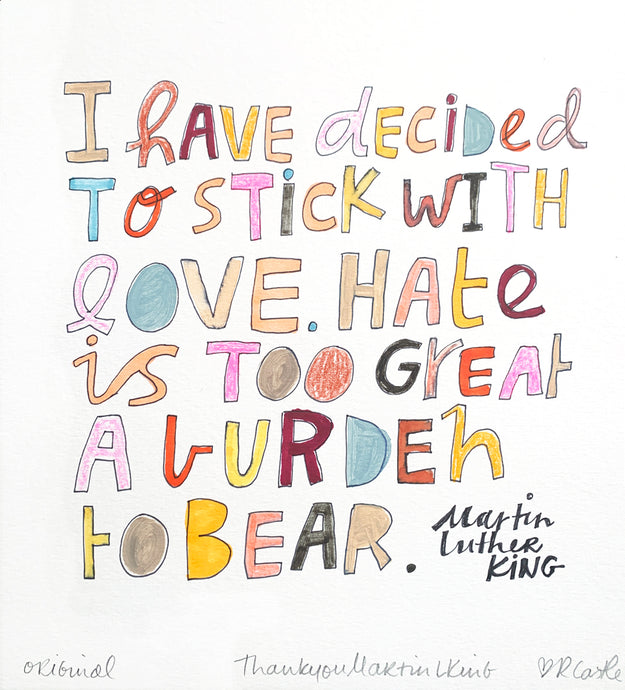 I hAVE decided
TO STiCK WITH
lOVE. HAtE
is TOO GrEAt
A bURDEN
tO BEAR.
Martin
Luther
KiNG
ORiGiNal
ThankyouMaRtinLKiNG
♡R Castle